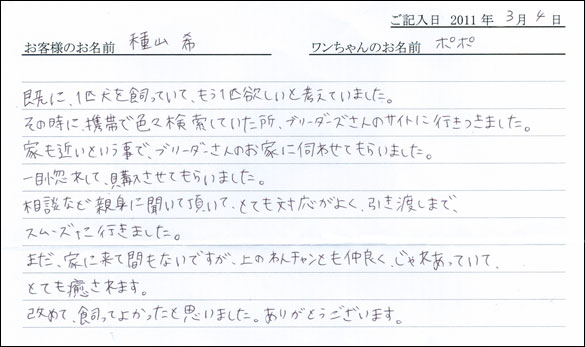 ご記入日 2011 年 3 月 4 日
お客様のお名前 種山 希 ワンちゃんのお名前 ポポ
既に、1匹犬を飼っていて、もう1匹欲しいと考えていました。
その時に、携帯で色々検索していた所、ブリーダーズさんのサイトに行きつきました。
家も近いという事で、ブリーダーさんのお家に伺わせてもらいました。
一目惚れして、購入させてもらいました。
相談など親身に聞いて頂いて、とても対応がよく、引き渡しまで、
スムーズに行きました。
まだ、家に来て間もないですが、上のわんチャンとも仲良く、じゃれあっていて、
とても癒されます。
改めて、飼ってよかったと思いました。ありがとうございます。